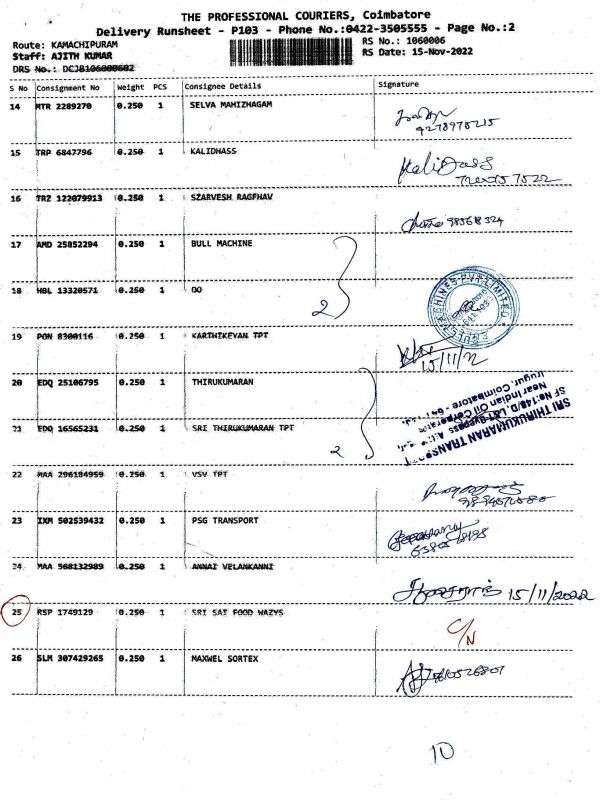 THE PROFESSIONAL COURIERS, Coimbatore
Delivery Runsheet - P103 - Phone No.:0422-3505555 - Page No.:2
Route: KAMACHIPURAM
RS No.: 1060006
Staff: AJITH KUMAR
RS Date: 15-Nov-2022
S No Consignment No Weight PCS Consignee Details Signature
14 MTR 2289270 0.250 1 SELVA MAHIZHAGAM
15 TRP 6847796 0.250 1 KALIDHASS
KaliDass
16 TRZ 122079913 0.250 1 SZARVESH RAGFHAV
17 AMD 25852294 0.250 1 BULL MACHINE
18 HBL 13320571 0.250 1 DO
2
19 PON 8300116 0.250 1 KARTHIKEYAN TPT
15/11/22
20 EDQ 25106795 0.250 1 THIRUKUMARAN
SRI THIRUKUMARAN TRANSPORT
Near Indian Oil Corporation
Irugur, Coimbatore
21 EDQ 16565231 0.250 1 SRI THIRUKUMARAN TPT
2
22 MAA 296184959 0.250 1 VSV TPT
23 IXM 502539432 0.250 1 PSG TRANSPORT
24 MAA 568132989 0.250 1 ANNAI VELANKANNI
15/11/2022
25 RSP 1749129 0.250 1 SRI SAI FOOD WAZYS
C/N
26 SLM 307429265 0.250 1 MAXWEL SORTEX
10